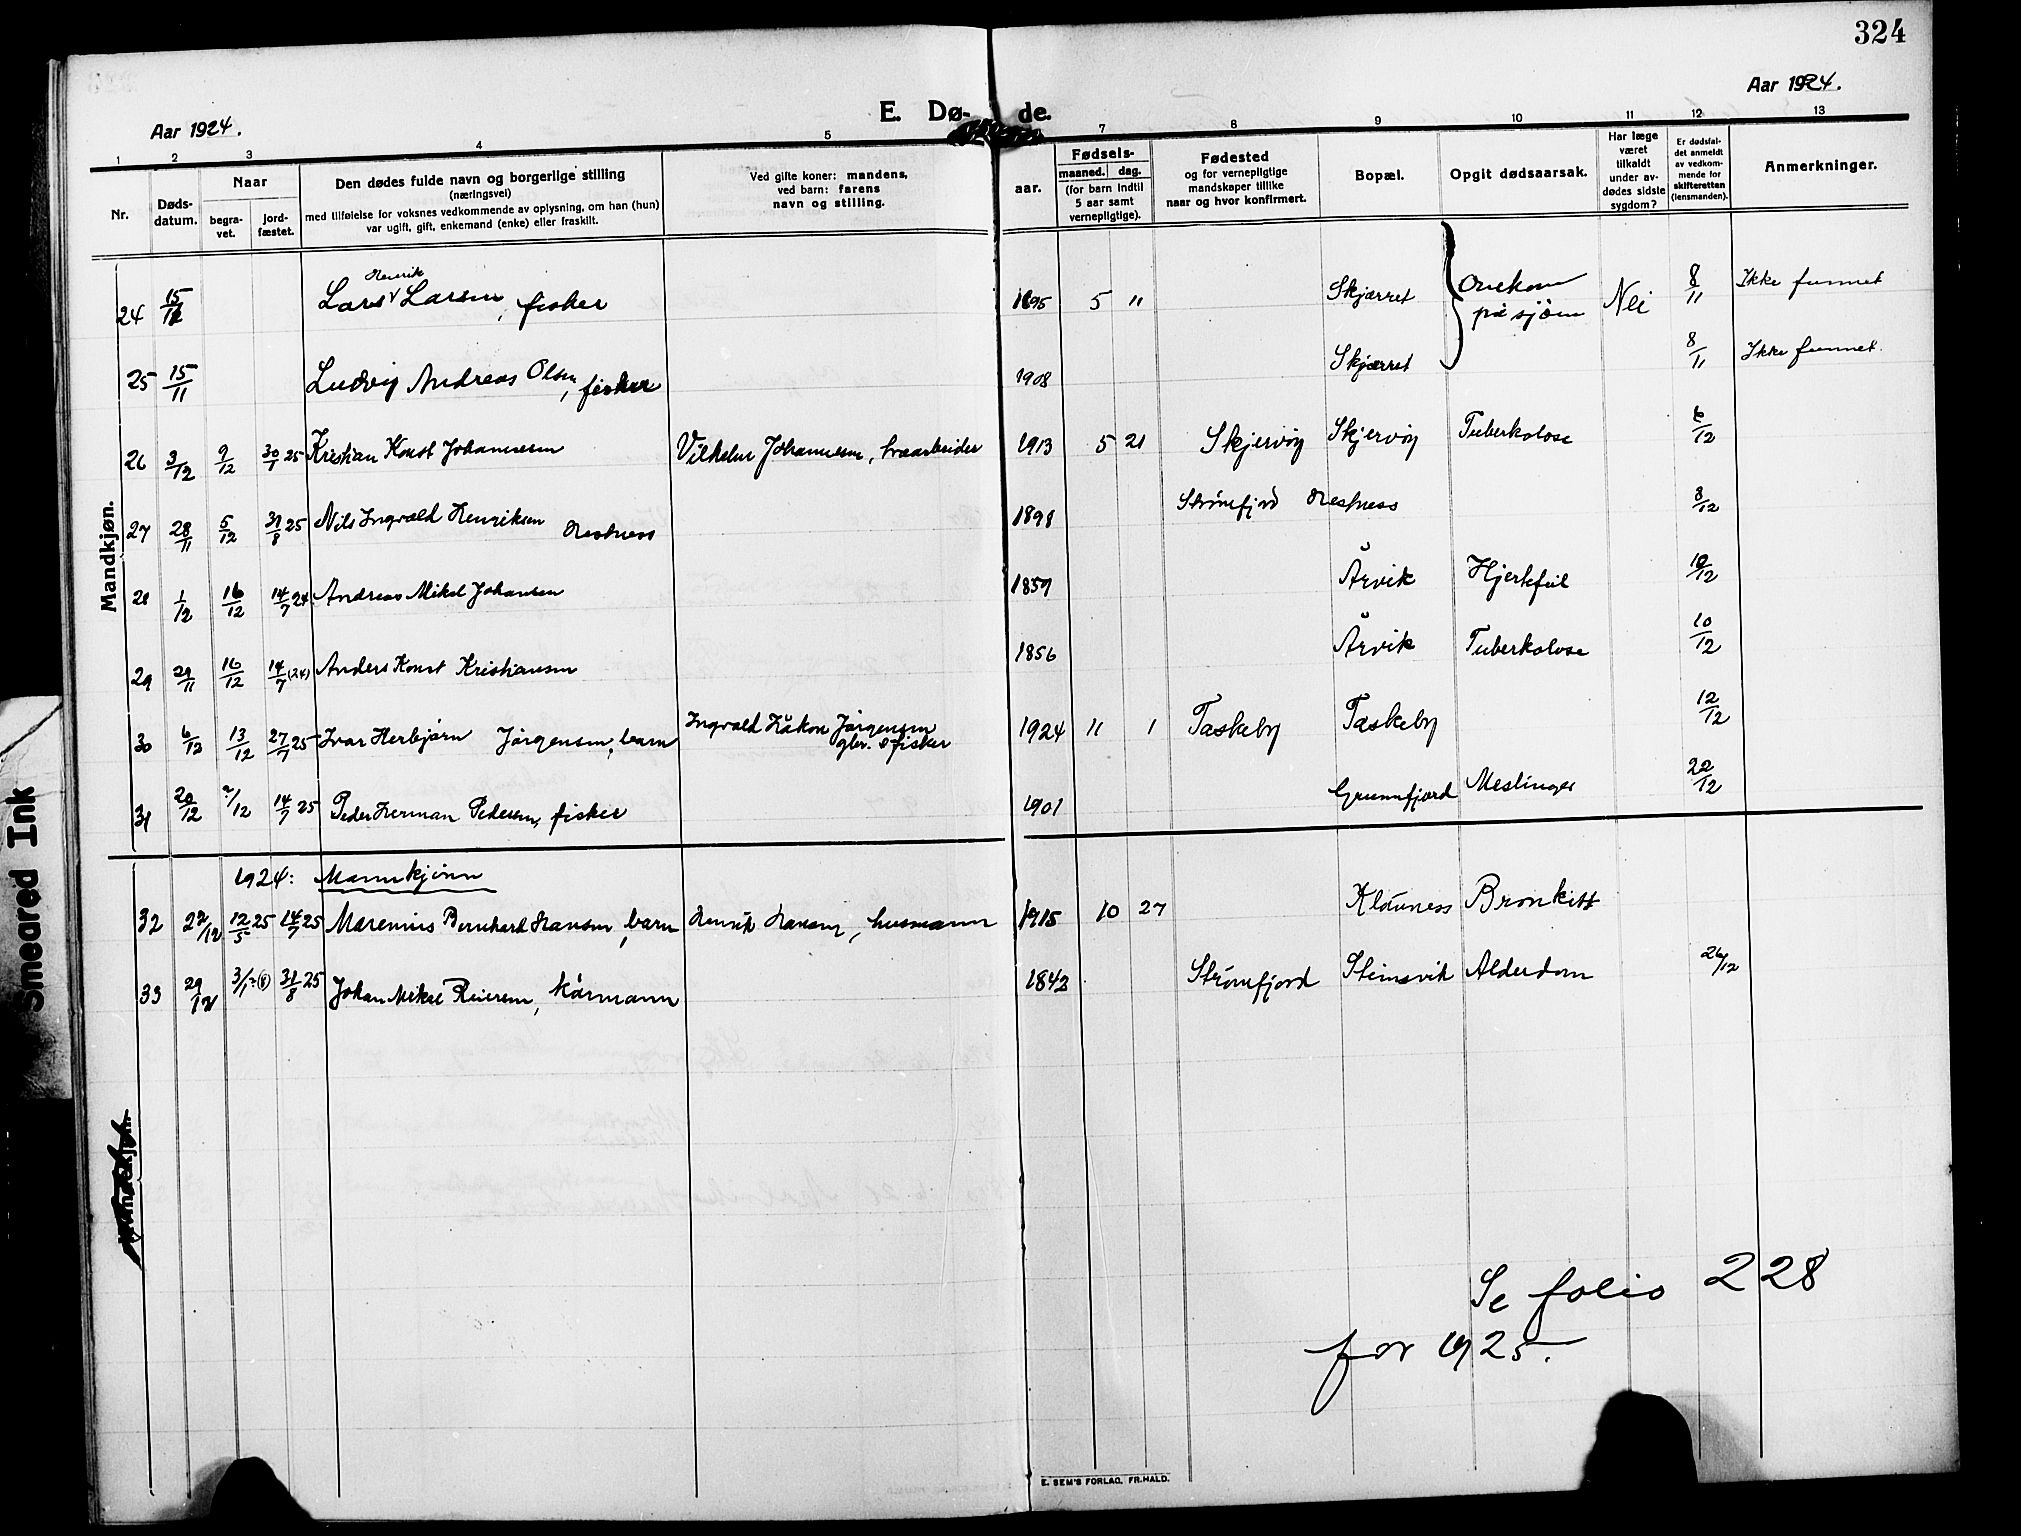 324
Aar 1924.
Aar 1924.
E. Dø- de.
1 2 3 4 5 7 8 9 10 11 12 13
Nr.
Døds-
datum.
Naar
begra-
vet.
jord-
fæstet.
Den dødes fulde navn og borgerlige stilling
(næringsvei)
med tilføielse for voksnes vedkommende av oplysning, om han (hun)
var ugift, gift, enkemand (enke) eller fraskilt.
Ved gifte koner: mandens,
ved barn: farens
navn og stilling.
aar.
Fødsels-
maaned. dag.
(for barn indtil
5 aar samt
vernepligtige).
Fødested
og for vernepligtige
mandskaper tillike
naar og hvor konfirmert.
Bopæl.
Opgit dødsaarsak.
Har læge
været
tilkaldt
under av-
dødes sidste
sygdom?
Er dødsfal-
det anmeldt
av vedkom-
mende for
skifteretten
(lensmanden).
Anmerkninger.
Mandkjøn.
24 15/11 Lars Henrik Larsen, fisker 1895 5 " Skjærret Omkom på sjöen Nei 8/11 Ikke funnet
25 15/11 Ludvig Andreas Olsen, fisker 1908 Skjærret 8/11 Ikke funnet.
26 3/12 9/12 30/1 25 Kristian Konst Johannesen Vilhelm Johannesen, 1913 5 21 Skjervöy Skjervöy Tuberkolose 6/12
27 28/11 5/12 31/8 25 Nils Ingvald Henriksen Hestness 1898 Strömfjord Hestness 8/12
28 1/12 16/12 14/7 24 Andreas Mikal Johansen 1859 Årvik Hjertefeil 10/12
29 29/11 16/12 14/7 (24) Anders Konst Kristiansen 1856 Årvik Tuberkolose 10/12
30 6/12 13/12 27/7 25 Ivar Herbjørn Jörgensen, barn Ingvald Håkon Jörgensen gbr. & fisker 1924 11 1 Taskeby Taskeby 12/12
31 20/12 ?/12 14/7 25 Peder Herman Pedersen, fisker 1901 Grunnfjord Meslinger 22/12
1924: Mannkjönn
32 22/12 12/5 25 14/7 25 Marenius Bernhard Hansen, barn Henrik Hansen, husmann 1915 10 27 Klauvness Bronkitt
33 29/12 31/8 25 Johan Mikal Reiersen, kårmann 1842 Strömfjord Steinsvik Alderdom 26/12
Se folio 228
for 1925.
E. SEM'S FORLAG, FR.HALD.
Smeared Ink